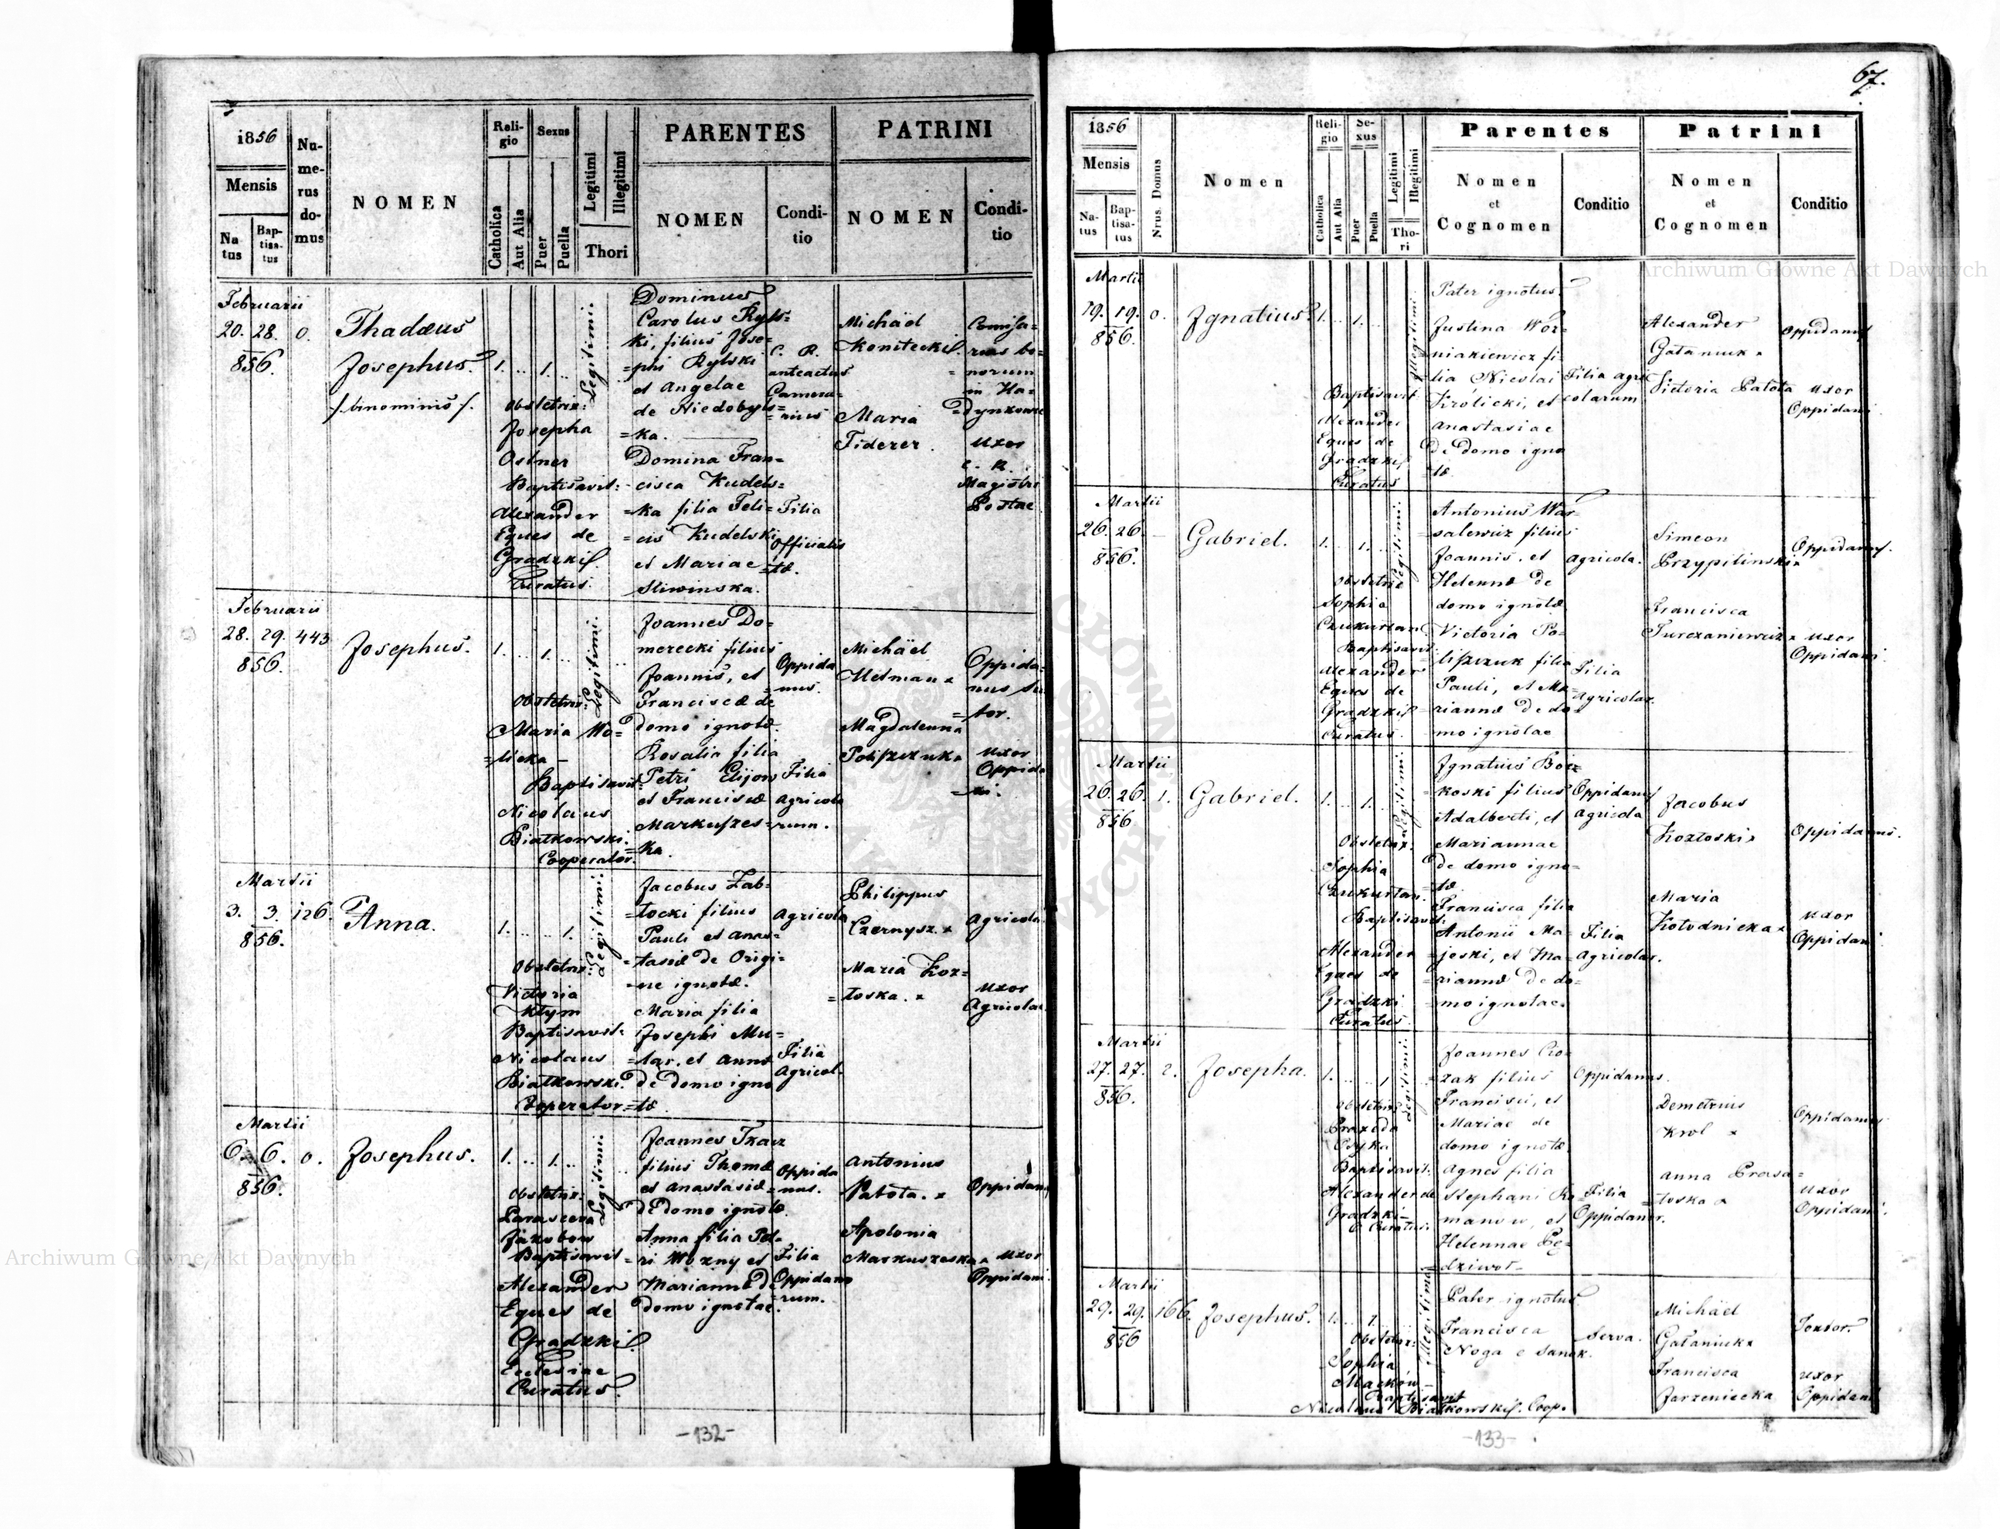 67.
1856
Mensis
Na
tus
Bap-
tisa-
tus
Nu-
me-
rus
do-
mus
NOMEN
Reli-
gio
Catholica
Aut Alia
Sexus
Puer
Puella
Legitimi
Illegitimi
Thori
PARENTES
NOMEN
Condi-
tio
PATRINI
NOMEN
Condi-
tio
Februarii
20. 28. 0.
856.
Thadæus
Josephus.
/:binominis:/.
1. .. 1. ..
Legitimi.
Obstetrix:
Josepha
Ostner
Baptisavit:
Alexander
Eques de
Gradzki
Curatus.
Dominus
Carolus Ryls=
ki, filius Jose=
=phi Rylski
et Angelae
de Niedobyls=
=ka.
Domina Fran=
cisca Kudels=
=ka filia Feli=
=cis Kudelski
et Mariae
Sliwinska.
C. R.
anteactus
Camera=
=rius
Filia
Officialis
=tæ.
Michäel
Konitecki
Maria
Fiderer.
Comisa=
rius bo=
=norum
in Ha=
=dynkowce
Uxor
c. R.
Magistri
Postae
Februarii
28. 29. 443
856.
Josephus.
1. .. 1. ..
Legitimi.
Obstetrix
Maria Wo=
=licka
Baptisavit
Nicolaus
Białkowski.
Cooperator.
Joannes Do=
merecki filius
Joannis, et
Franciscæ de
domo ignotæ.
Rosalia filia
Petri Elijow
et Franciscæ
Markuszes=
=ka.
Oppida
=nus.
Filia
Agricola
=rum.
Michäel
Hetman x
Magdalenna
Poliszczuk x
Oppida=
nus Su
=tor.
Uxor
Oppida
=ni.
Martii
3. 3. 126.
856.
Anna.
1. .. 1.
Legitimi.
Obstetrix
Victoria
Kłym
Baptisavit
Nicolaus
Białkowski.
Cooperator
Jacobus Zab=
=łocki filius
Pauli et Anas=
=tasiæ de Origi=
=ne ignotæ.
Maria filia
Josephi Mu=
=lar, et Annæ
de domo igno
=tæ
Agricola
Filia
Agricol.
Philippus
Czernysz x
Maria Koz=
=łoska. x
Agricola
Uxor
Agricolae
Martii
6. 6. 0.
856.
Josephus.
1. .. 1. ..
Legitimi.
Obstetrix
Parasceva
Jakobow
Baptisavit
Alexander
Eques de
Gradzki
Ecclesiae
Curatus.
Joannes Tkacz
filius Thomæ
et Anastasiæ
de domo ignotæ.
Anna filia Pet=
=ri Wozny et
Mariannæ de
domo ignotae.
Oppida
=nus.
Filia
Oppidano
=rum.
Antonius
Patota. x
Apolonia
Markuszeska x
Oppidan
Uxor
Oppidani
-132-
1856
Mensis
Na-
tus
Bap-
tisa-
tus
Nrus. Domus
Nomen
Reli-
gio
Catholica
Aut Alia
Se-
xus
Puer
Puella
Legitimi
Illegitimi
Tho-
ri
Parentes
Nomen
et
Cognomen
Conditio
Patrini
Nomen
et
Cognomen
Conditio
Martii
19. 19. 0.
856.
Ignatius.
1. .. 1. ..
Illegitimi.
Baptisavit
Alexander
Eques de
Gradzki
Curatus
Pater ignotus.
Justina Woz=
=niakiewicz fi=
lia Nicolai
Krolicki, et
Anastasiae
de domo igno
=tæ.
Filia agri
=colarum
Alexander
Gataniuk x
Victoria Patota
Oppidanus
Uxor
Oppidani
Martii
26. 26. -
856.
Gabriel.
1. .. 1. ..
Legitimi.
Obstetrix
Sophia
Czukurtan
Baptisavit
Alexander
Eques de
Gradzki
Curatus.
Antonius War=
=salewicz filius
Joannis, et
Helennæ de
domo ignotæ
Victoria Po=
liszczuk filia
Pauli, et Ma=
=riannæ de do=
mo ignotae
Agricola.
Filia
Agricolar.
Simeon
Przypilinski x
Francisca
Turczaniewicz x
Oppidanus.
Uxor
Oppidani.
Martii
26. 26. 1.
856
Gabriel.
1. .. 1. ..
Legitimi.
Obstetrix.
Sophia
Czukurtan.
Baptisavit
Alexander
Eques de
Gradzki
Curatus.
Ignatius Bor=
=koski filius
Adalberti, et
Mariannae
de domo igno=
=tæ.
Francisca filia
Antonii Ma=
joski, et Ma=
=riannæ de do=
=mo ignotae.
Oppidanus
Agricola
Filia
Agricolar.
Jacobus
Kozłoski x
Maria
Kołodnicka x
Oppidanus.
Uxor
Oppidani
Martii
27. 27. 2.
856.
Josepha.
1. .. 1
Legitimi.
Obstetrix
Praxeda
Baptisavit.
Alexander de
Gradzki
Curatus
filius
Francisci, et
Mariae de
domo ignotæ.
Agnes filia
Stephani Ro=
manow, et
Helennae Pę=
dziwot-
Oppidanus.
Filia
Oppidanor.
Demetrius
Krol x
Anna Prasa=
=łoska x
Oppidanus
Uxor
Oppidani.
Martii
29. 29. 166.
856
Josephus.
1. .. 1.
Illegitimi
Obstetrix.
Sophia
Maćków
Baptisavit
Nicolaus Białkowski. Coop.
Pater ignotus
Francisca
Noga e Sanok.
Serva.
Michäel
Gałaniuk x
Francisca
Jarzeniecka
Tonsor.
Uxor
Oppidani
-133-
Archiwum Główne Akt Dawnych
Archiwum Główne Akt Dawnych